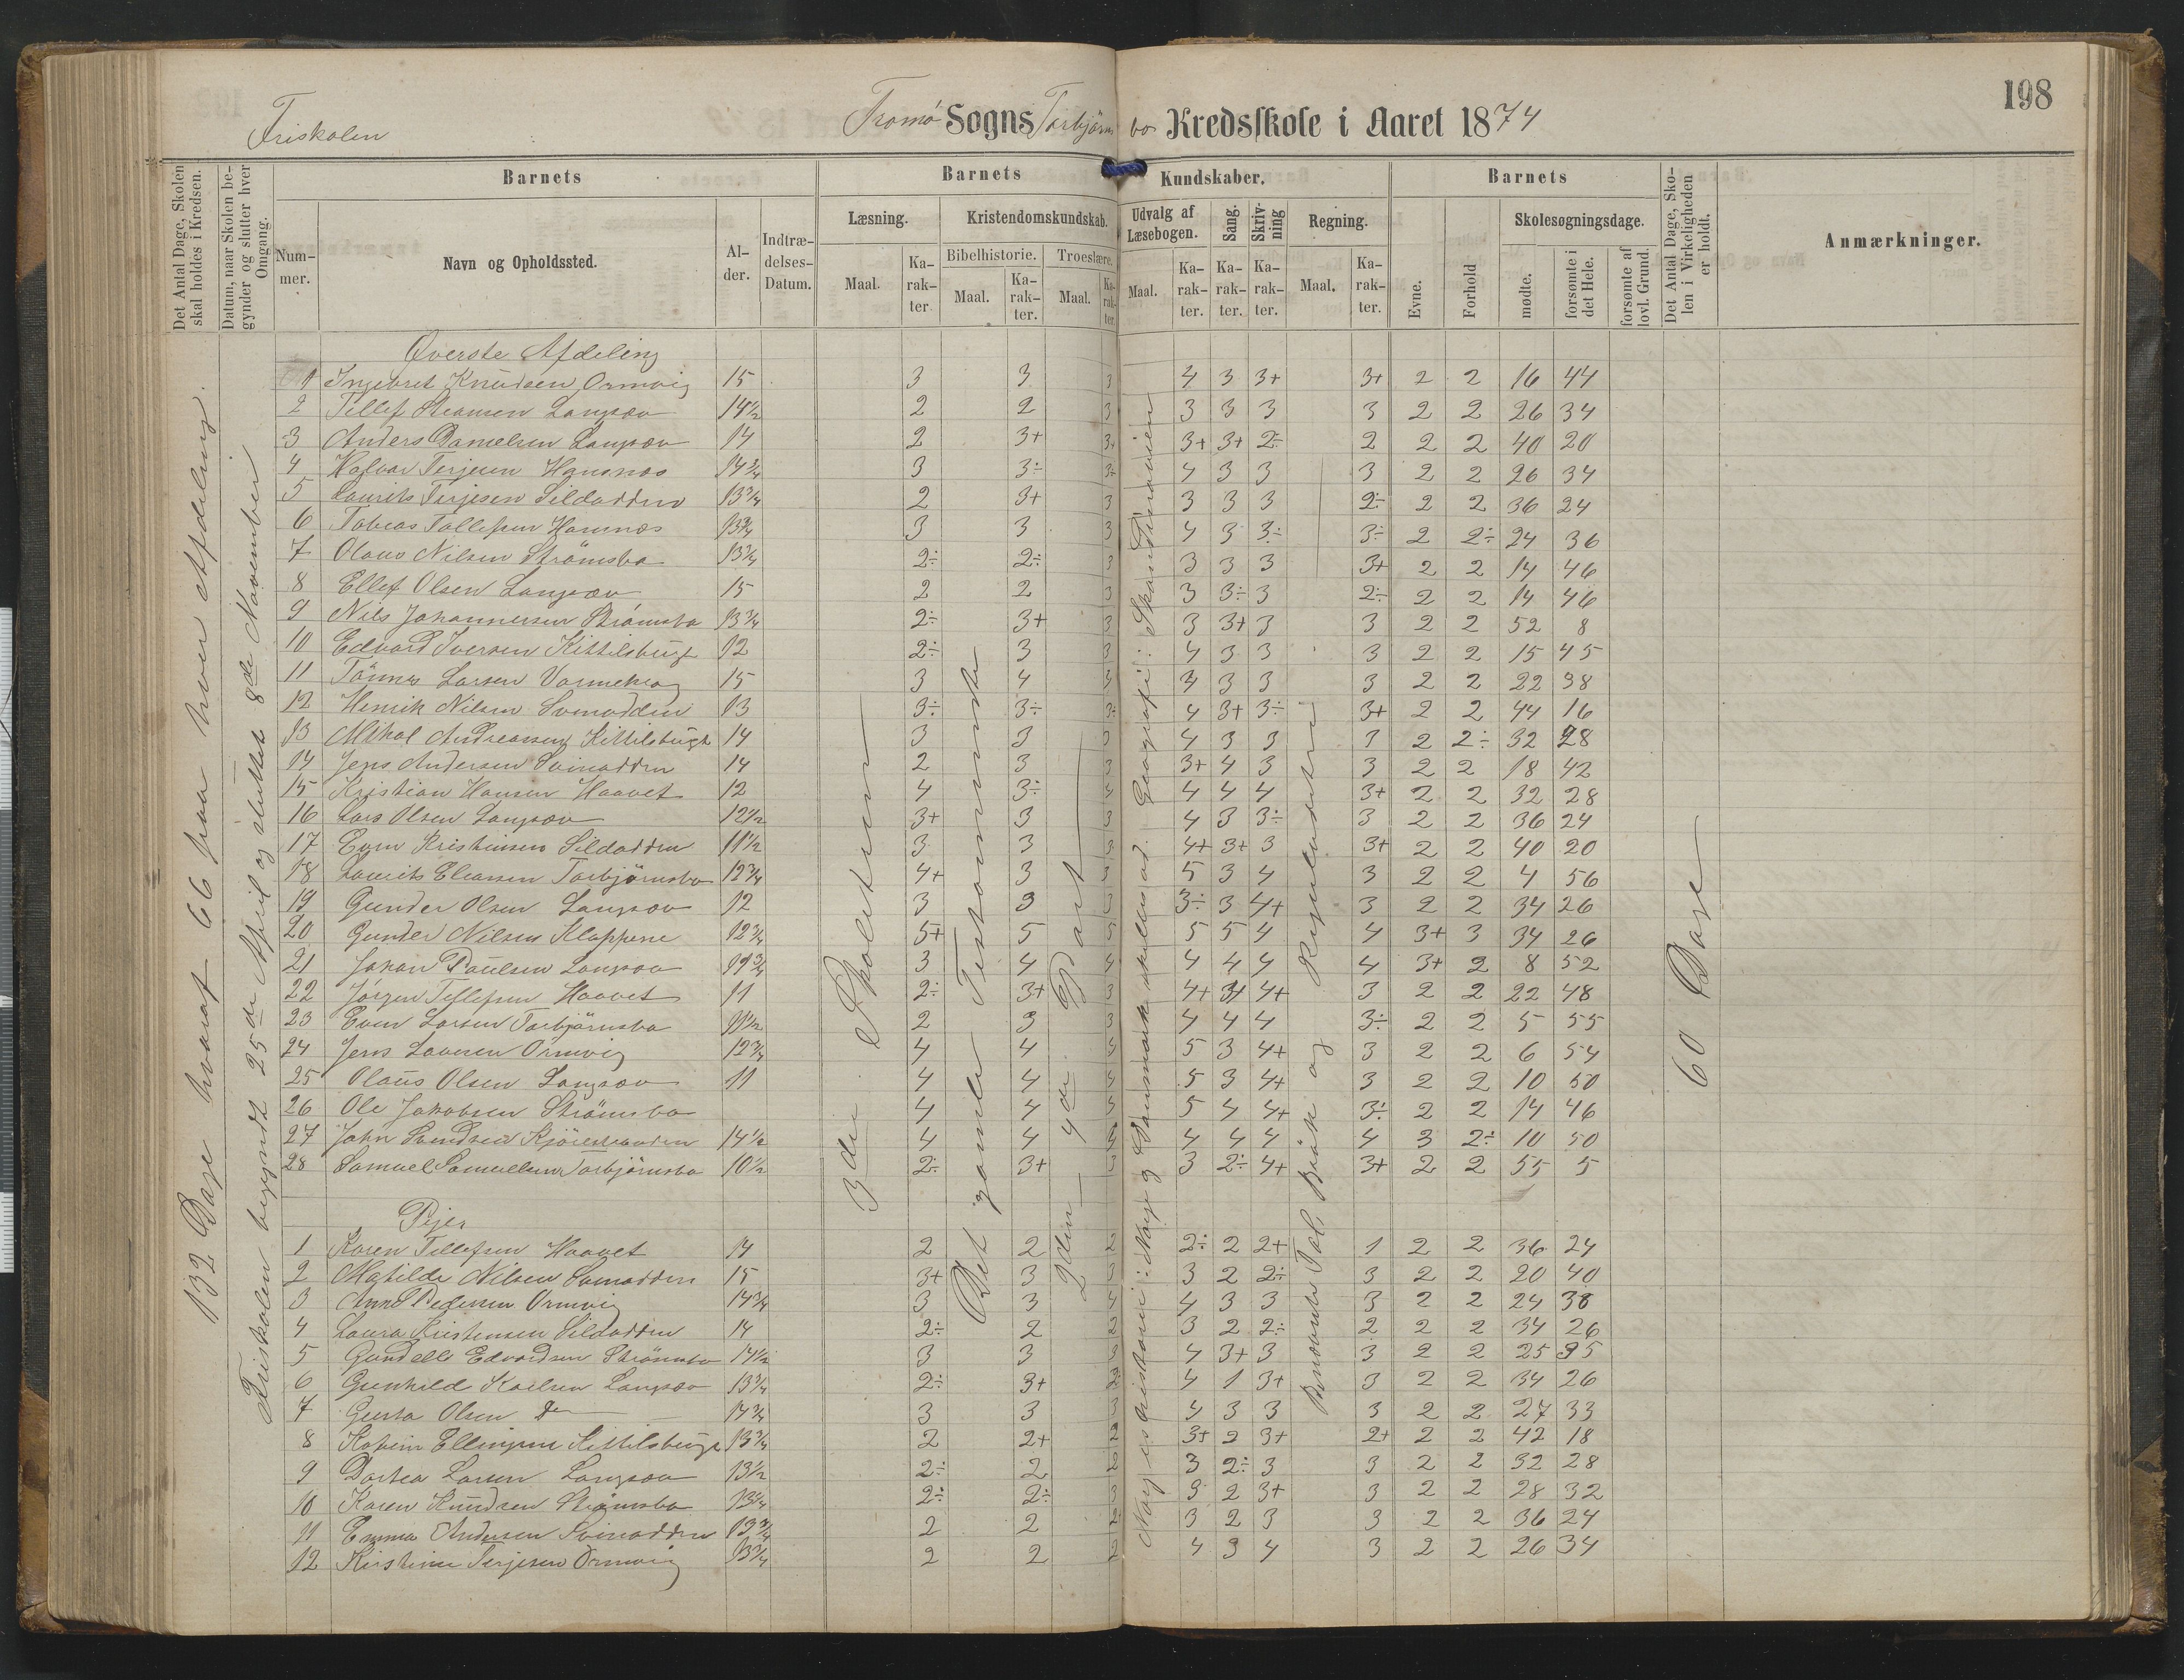 198
Friskolen Tromø Sogns Torbjørnsbo Kredsskole i Aaret 1874
Det Antal Dage, Skolen skal holdes i Kredsen.
Datum, naar Skolen begynder og slutter hver Omgang.
Barnets
Nummer.
Navn og Opholdssted.
Alder.
Indtrædelses-Datum.
Barnets Kundskaber.
Læsning.
Maal.
Karakter
Kristendomskundskab.
Bibelhistorie.
Maal.
Karakter.
Troeslære.
Maal.
Karakter.
Udvalg af Læsebogen.
Maal.
Karakter.
Sang.
Karakter.
Skrivning
Karakter.
Regning.
Maal.
Karakter.
Barnets
Evne.
Forhold
Skolesøgningsdage.
mødte.
forsømte i det Hele.
forsømte af lovl. Grund.
Det Antal Dage, Skolen i Virkeligheden er holdt.
Anmærkninger.
132 Dage hvoraf 66 paa hver Afdeling.
Friskolen begyndt 25de April og sluttet 8de November
3die Skoletrin
Det gamle Testamente
2den 4de Part
Norges historie: Norge og Danmark Geografi: Skandinavien
Benævnte Tal, Brøk og Reguladetri
60 Dage
Øverste Afdeling
1 Ingebret Knudsen Ormvig 15 3 3 3 4 3 3+ 3+ 2 2 16 44
2 Tellef Langsæv 14½ 2 2 3 3 3 3 3 2 2 26 34
3 Anders Danielsen Langsæv 14 2 3+ 3+ 3+ 3+ 2÷ 2 2 2 40 20
4 Terjesen 14¾ 3 3÷ 3+ 4 3 3 3 2 2 26 34
5 Laurits Terjesen Sildodden 13¾ 2 3+ 3 3 3 3 2÷ 2 2 36 24
6 Tobias Tellefsen 13¾ 3 3 3 4 3 3÷ 3÷ 2 2÷ 24 36
7 Olaus Nilsen Strömsbo 13¾ 2÷ 2÷ 3 3 3 3 3+ 2 2 14 46
8 Ellef Olsen Langsæv 15 2 2 3 3 3÷ 3 2÷ 2 2 14 46
9 Nils Johannesen Strömsbo 13¾ 2÷ 3+ 3 3 3+ 3 3 2 2 52 8
10 Edvard Iversen Kittilsbugt 12 2÷ 3 3 4 3 3 3 2 2 15 45
11 Tönnes Larsen Varmekrog 15 3 4 3 4 3 3 3 2 2 22 38
12 Henrik Nilsen Svinodden 13 3÷ 3÷ 3÷ 4 3+ 3÷ 3+ 2 2 44 16
13 Mikal Andreasen Kittilsbugt 14 3 3 3 4 3 3 3 2 2÷ 32 28
14 Jens Andersen Svinodden 14 2 3 3 3+ 4 3 3 2 2 18 42
15 Kristian Hansen Haavet 12 4 3÷ 4 4 4 4 3+ 2 2 32 28
16 Lars Olsen Langsæv 12½ 3+ 3 3 4 3 3÷ 3 2 2 36 24
17 Even Kristensen Sildodden 11½ 3 3 3 4+ 3+ 3 3+ 2 2 40 20
18 Laurits Eliassen Torbjörnsbo 12¾ 4+ 3 3 5 3 4 3 2 2 4 56
19 Gunder Olsen Langsæv 12 3 3 3 3÷ 3 4+ 3 2 2 34 26
20 Gunder Nilsen Klappene 12¾ 5+ 5 5 5 5 4 4 3+ 3 34 26
21 Johan Paulsen Langsæv 11¾ 3 4 4 4 4 4 4 3+ 2 8 52
22 Jörgen Tellefsen Haavet 11 2÷ 3+ 3 4+ 3+ 4+ 3 2 2 22 48
23 Even Larsen Torbjörnsbo 11½ 2 3 3 4 4 4 3÷ 2 2 5 55
24 Jens Larsen Ormvig 12¾ 4 4 4 5 3 4+ 3 2 2 6 54
25 Olaus Olsen Langsæv 11 4 4 4 5 3 4+ 3 2 2 10 50
26 Ole Jakobsen Strömsbo 4 4 4 5 4 4+ 3÷ 2 2 14 46
27 John Svendsen 14½ 4 4 4 4 4 4 4 3 2÷ 10 50
28 Samuel Samuelsen Torbjörnsbo 10½ 2÷ 3+ 3 3 2÷ 4+ 3+ 2 2 55 5
Piger
1 Karen Tellefsen Haavet 14 2 2 2 2÷ 2 2+ 1 2 2 36 24
2 Matilde Nilsen Svinodden 15 3+ 3 3 3 2 2÷ 3 2 2 20 40
3 Anne Pedersen Ormvig 14¾ 3 3 4 4 3 3 3 2 2 24 38
4 Laura Kristensen Sildodden 14 2÷ 2 2 3 2 2÷ 2 2 2 34 26
5 Edvardsen Strömsbo 14½ 3 3 3 4 3+ 3 3 2 2 25 35
6 Gunhild Karlsen Langsæv 13¾ 2÷ 3+ 2÷ 4 1 3+ 3 2 2 34 26
7 Olsen Do 14¾ 3 3 3 4 3 3 3 2 2 27 33
8 Ellingsen Kittilsbugt 13¾ 2 2+ 2 3+ 2 3+ 2+ 2 2 42 18
9 Dortea Larsen Langsæv 13½ 2÷ 2 2 3 2÷ 3 3 2 2 32 28
10 Karen Knudsen Strömsbo 13¼ 2÷ 2÷ 3 3 2 3+ 3 2 2 28 32
11 Emma Andersen Svinodden 13¾ 2 2 2 3 2 3 3 2 2 36 24
12 Kirstine Terjesen Ormvig 13¾ 2 2 2 4 3 4 3 2 2 26 34